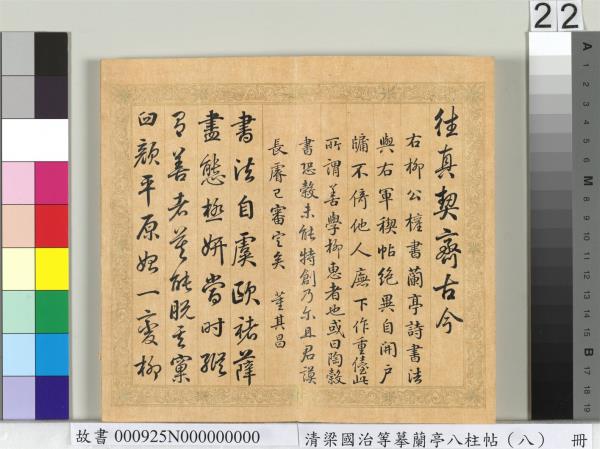 22
往真契齊古今
右柳公權書蘭亭詩書法
與右軍禊帖絶異自開戶
牖不倚他人廡下作重儓此
所謂善學柳惠者也或曰陶縠
書恐縠未能特創乃尔且君謨
長睿已審定矣 董其昌
書法自虞歐褚薛
盡態極妍當時縱
有善者莫能脫其窠
臼顏平原始一變柳
A 1 2 3 4 5 6 M 8 9 10 11 12 13 14 15 B 17 18 19
故書 000925N000000000 清梁國治等摹蘭亭八柱帖（八） 冊